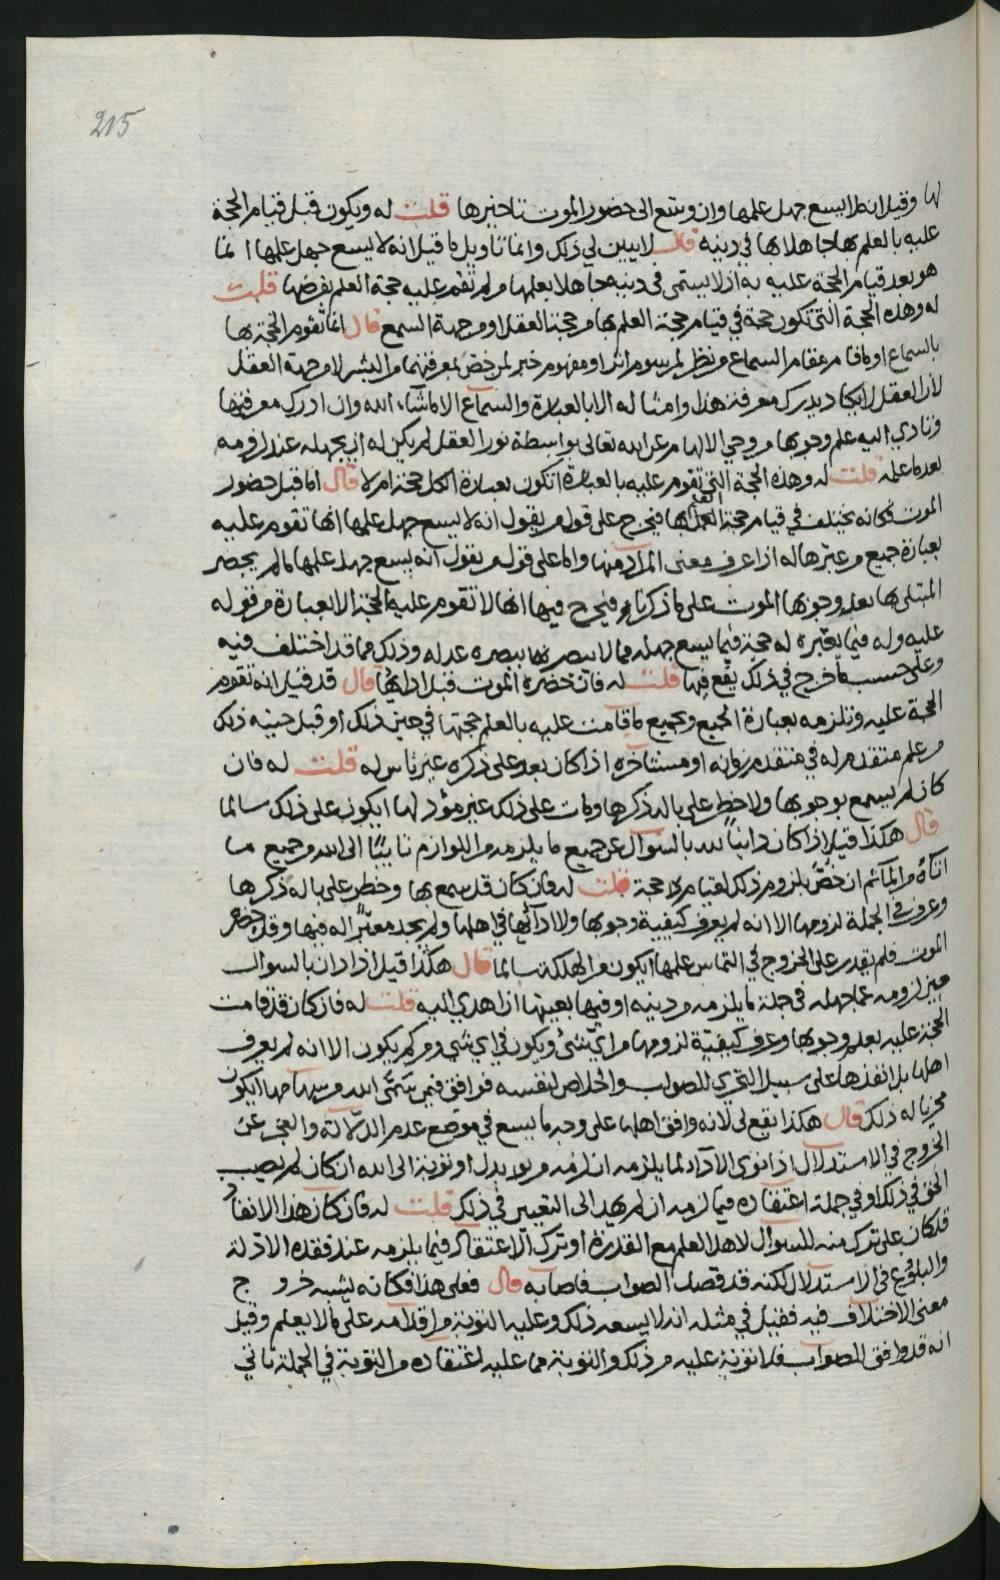 215
لها وقيل انه لا يسع جهل علمها وان وسع الى حضور الموت تاخيرها قلت له ويكون قبل قيام الحجة
عليه بالعلم بها جاهلا بها في دينه قال لا يبين لي ذلك وانما تاويل ما قيل انه لا يسع جهل علمها انما
هو بعد قيام الحجة عليه به اذ لا يسمى في دينه جاهلا بعلمها ولم تقم عليه حجة العلم بفرضها قلت
له وهذه الحجة التي تكون حجة في قيام حجة العلم بها من حجة العقل او من جهة السمع قال انما تقوم الحجة بها
بالسماع او ما قام مقام السماع من نظر لمرسوم اثر او مفهوم خبر لمن خص لمعرفتهما من البشر لا من جهة العقل
لان العقل لا يكاد يدرك معرفة هذا وامثاله الا بالعبارة والسماع الا ما شاء الله وان ادرك معرفتها
وتادي اليه علم وجوبها من وحي الالهام عن الله تعالى بواسطة نور العقل لم يكن له ان يجهله عند لزومه
بعد ما علمه قلت له وهذه الحجة التي تقوم عليه بالعبارة اتكون بعبارة الكل حجة ام لا قال اما قبل حضور
الموت فكانه يختلف في قيام حجة العلم بها فيخرج على قول من يقول انه لا يسع جهل علمها انها تقوم عليه
بعبارة جميع من عبرها له اذا عرف معنى المراد منها واما على قول من يقول انه يسع جهل علمها ما لم يحضر
المبتلى بها بعد وجوبها الموت على ما ذكرناه فيخرج فيها انها لا تقوم عليه الحجة الا بعبارة من قوله
عليه وله فيما يعبره له حجة فيما يسع جهله مما لا يبصره ما يبصره عدله وذلك مما قد اختلف فيه
وعلى حسب ما خرج في ذلك يقع فيها قلت له فان حضره الموت قبل ادائها قال قد قيل انه تقوم
الحجة عليه وتلزمه بعبارة الجميع وبجميع ما قامت عليه بالعلم حجتها في حين ذلك او قبل حينه ذلك
من علم متقدم له في متقدم زمانه او مستاخره اذا كان بعد على ذكره غير ناس له قلت له فان
كان لم يسمع بوجوبها ولا خطر على باله ذكرها ومات على ذلك غير مؤد لها ايكون على ذلك سالما
قال هكذا قيل اذا كان داينا لله بالسوال عن جميع ما يلزمه من اللوازم تايبا الى الله من جميع ما
اتاه من المآثم ان خص بلزوم ذلك لقيام حجة قلت له فان كان قد سمع بها وخطر على باله ذكرها
وعرف في الجملة لزومها الا انه لم يعرف كيفية وجوبها ولا ادائها في اهلها ولم يجد معبرا له فيها وقد حضره
الموت فلم يقدر على الخروج في التماس علمها ايكون من الهلكة سالما قال هكذا قيل اذا دان بالسوال
حين لزومه عما جهله في جملة ما يلزمه من دينه او فيها بعينها اذا هدي اليه قلت له فان كان قد قامت
الحجة عليه بعلم وجوبها وعرف كيفية لزومها من اي شي ويكون في اي شي ومن كم يكون الا انه لم يعرف
اهلها بل انفذها على سبيل التحري للصواب والخلاص لنفسه فوافق فيمن سمى الله من سهامها ايكون
مجزيا له ذلك قال هكذا يقع لي لانه وافق اهلها على وجه ما يسع في موضع عدم الدلالة والعجز عن
الخروج في الاستدلال اذا نوى الاداء لما يلزمه ان لزمه من بعد بدل او توبة الى الله ان كان لم يصب
الحق في ذلك او في جملة اعتقاده فيما لزمه ان لم يهد الى التعيين في ذلك قلت له فان كان هذا الانفاذ
قد كان على ترك منه للسوال لاهل العلم مع القدرة او ترك الاعتقاد فيما يلزمه عند فقده الادلة
والبلوغ في الاستدلال لكنه قد قصد الصواب فاصابه قال فعلى هذا فكانه يشبه خروج
معنى الاختلاف فيه فقيل في مثله انه لا يسعه ذلك وعليه التوبة من اقدامه على ما لا يعلم وقيل
انه قد وافق الصواب فلا توبة عليه من ذلك والتوبة مما عليه اعتقاده من التوبة في الجملة تاتي